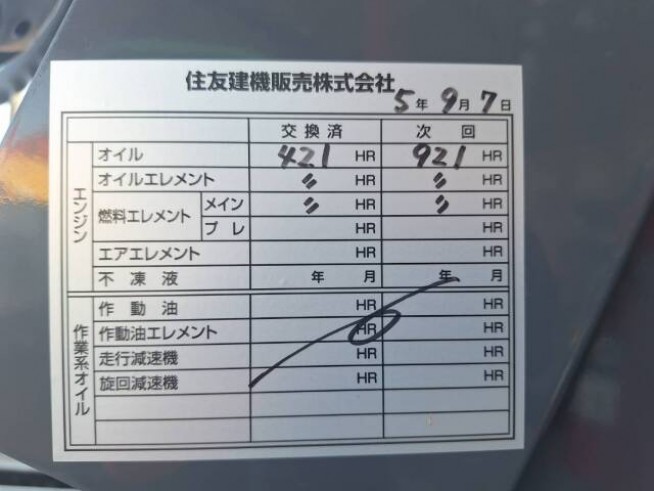 住友建機販売株式会社
5年 9月 7日
交換済 次回
エンジン
オイル 421 HR 921 HR
オイルエレメント 〃 HR 〃 HR
燃料エレメント メイン 〃 HR 〃 HR
プレ HR HR
エアエレメント HR HR
不凍液 年 月 年 月
作業系オイル
作動油 HR HR
作動油エレメント HR HR
走行減速機 HR HR
旋回減速機 HR HR